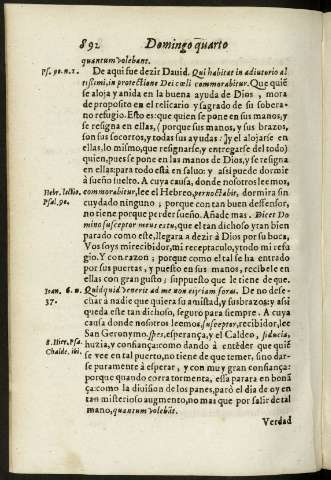 892 Domingo quarto
quantum volebant.
Ps. 90. n. 1. De aqui fue dezir Dauid. Qui habitat in adiutorio al
tissimi, in protectione Dei cœli commorabitur. Que quiẽ
se aloja y anida en la buena ayuda de Dios, mora
de proposito en el relicario y sagrado de su sobera-
no refugio. Esto es: que quien se pone en sus manos, y
se resigna en ellas, (porque sus manos, y sus brazos,
son sus socorros, y todas sus ayudas: ]y el alojarse en
ellas, lo mismo, que resignarse, y entregarse del todo)
quien, pues se pone en las manos de Dios, y se resigna
en ellas: para todo está en saluo: y assi puede dormir
à sueño suelto. A cuya causa, donde nosotros leemos,
Hebr. lectio. commorabitur, lee el Hebreo, pernoctabit, dormira sin
Psal. 90. cuydado ninguno; porque con tan buen deffensor,
no tiene porque perder sueño. Añade mas. Dicet Do
mino susceptor meus es tu, que el tan dichoso y tan bien
parado como este, llegara a dezir à Dios por su boca,
Vos soys mi recibidor, mi receptaculo, y todo mi refu
gio. Y con razon; porque como el tal se ha entrado
por sus puertas, y puesto en sus manos, recibele en
ellas con gran gusto; suppuesto que le tiene de que.
Ioan. 6. n. Quidquid venerit ad me non eijciam foras. De no dese-
37. cuar à nadie que quiera su amistad, y sus brazos: y assi
queda este tan dichoso, seguro para siempre. A cuya
causa donde nosotros leemos, susceptor, recibidor, lee
S. Hier. Psa. San Geronymo. spes, esperança, y el Caldeo, fiducia,
Chalde. ibi. huzia, y confiança: como dando à entẽder que quiẽ
se vee en tal puerto, no tiene que temer, sino dar-
se puramente à esperar, y con muy gran confiança:
porque quando corra tormenta, essa parara en bonã
ça: como la diuision de los panes, paró el dia de oy en
tan misterioso augmento, no mas que por salir de tal
mano, quantum volebãt.
Verdad